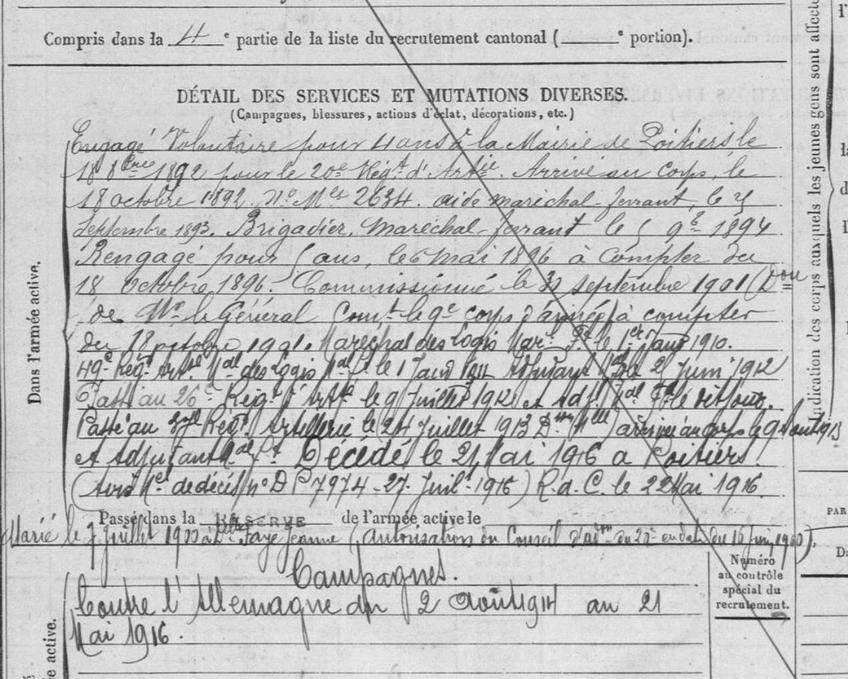 Compris dans la 4e partie de la liste du recrutement cantonal ( e portion).
DÉTAIL DES SERVICES ET MUTATIONS DIVERSES.
(Campagnes, blessures, actions d'éclat, décorations, etc.)
Engagé Volontaire pour 4 ans à la Mairie de Poitiers le
18 8bre 1892 pour le 20e Régt d'Artie. Arrivé au corps, le
18 octobre 1892. No Mle 2634. aide maréchal-ferrant, le
septembre 1893. Brigadier, maréchal-ferrant le 1894
Rengagé pour 5 ans, le 6 mai 1896 à compter du
18 octobre 1896. Commissionné le septembre 1901 (Don
de Mr le Général Comt le 9e corps d'armée) à compter
du 18 octobre 1901. Maréchal des logis Mal Ft le 1er 1910.
49e Régt Artie Mal des logis Mal Ft le 1 1911 Adjudant le 2 Juin 1912
Passé au 26e Régt d'Artie le 9 Juillet 1912 et Adjt Mal Ft le dit jour.
Passé au Régt Artillerie le 24 Juillet 1913 arrivé au corps le 9 Aout 1913
et Adjudant Mal Ft Décédé le 21 Mai 1916 à Poitiers
(Avis Mel de décès no D P 7974-27. Juilt 1916) R. d. C. le 22 Mai 1916.
Passé dans la RÉSERVE de l'armée active le
Marié le 9 Juillet 1900 à Faye Jeanne (Autorisation du Conseil d'Adon du 20e en date du 16 Juin 1900).
Campagnes.
Contre l'Allemagne du 2 Août 1914 au 21
Mai 1916.
Dans l'armée active.
ée active.
Indication des corps auxquels les jeunes gens sont affect
Numéro
au contrôle
spécial du
recrutement.
PAR
Da